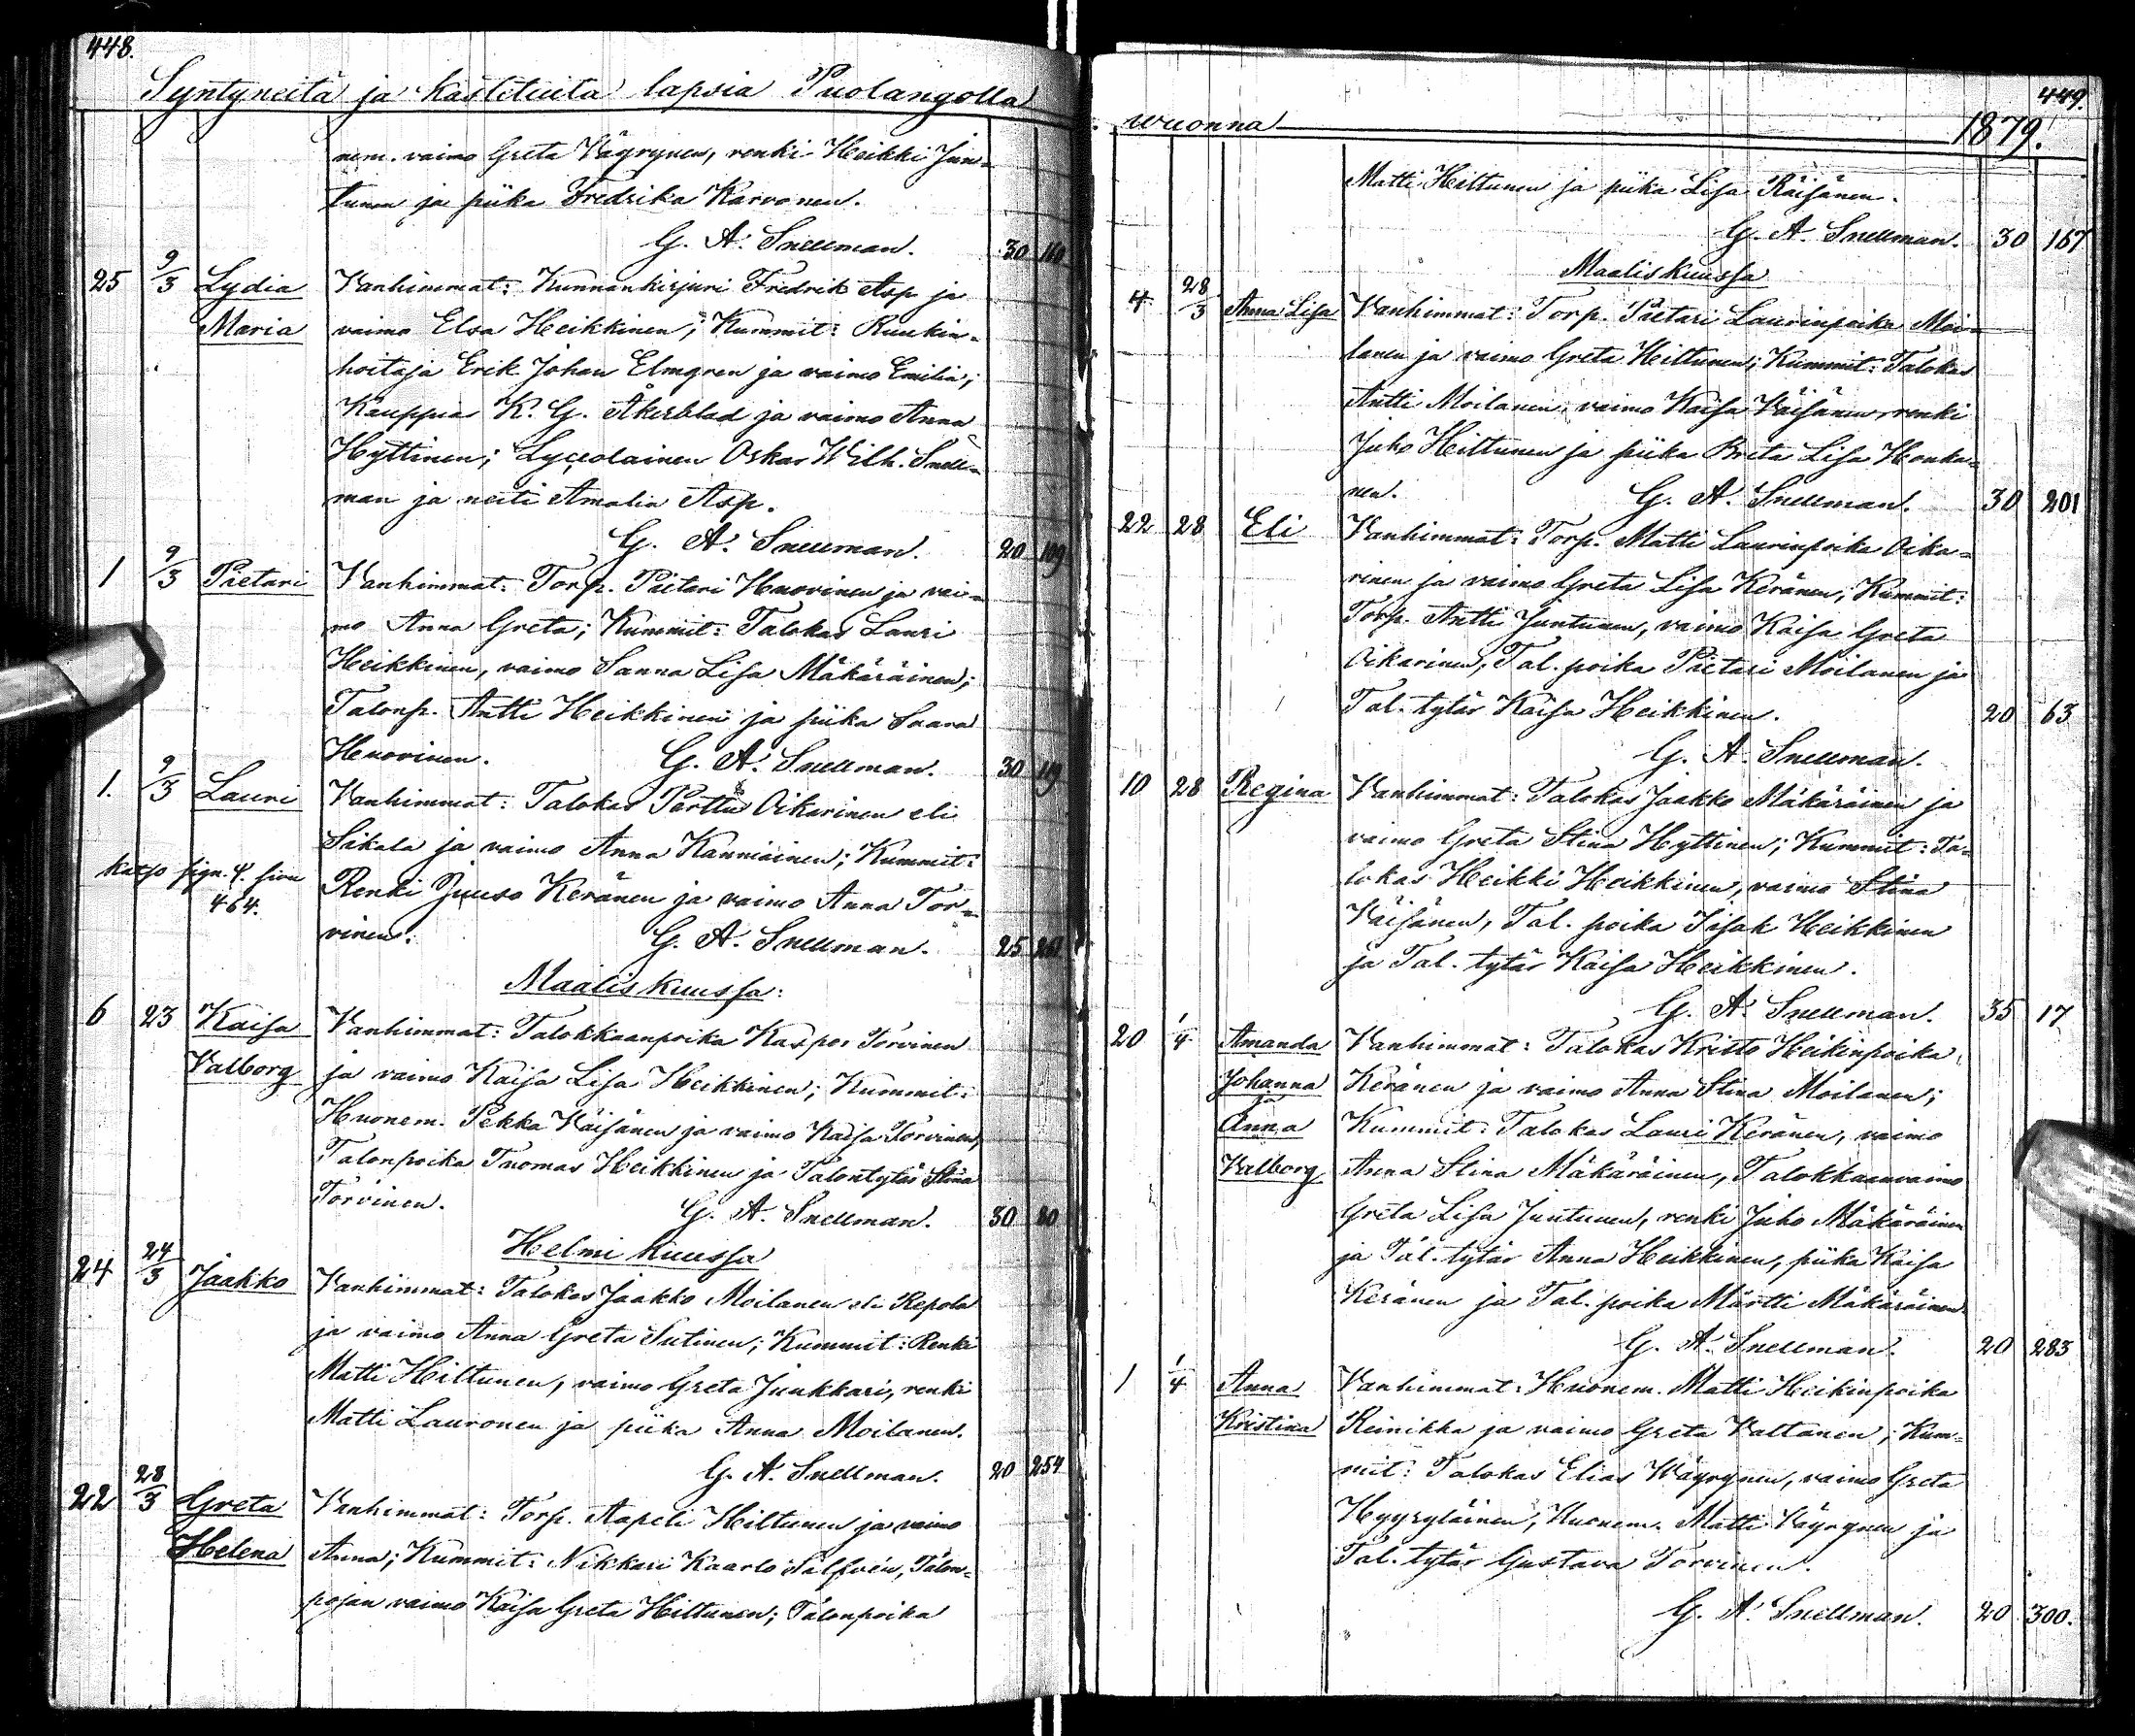 448.
Syntyneitä ja kastetuita lapsia Puolangolla
nem. vaimo Greta Väyrynen, renki Heikki Jun-
tunen ja piika Fredrika Karvonen.
G. A. Snellman. 30 160
25 9/3 Lydia Vanhimmat: Kunnankirjuri Fredrik Asp ja
Maria vaimo Elsa Heikkinen; Kummit: Ruukin-
hoitaja Erik Johan Elmgren ja vaimo Emilia;
Kauppias K. G. Åkerblad ja vaimo Anna
Hyttinen; Lyceolainen Oskar Wilh. Snell-
man ja neiti Amalia Asp.
G. A. Snellman. 20 109
1 9/3 Pietari Vanhimmat: Torp. Pietari Huovinen ja vai-
mo Anna Greta; Kummit: Talokas Lauri
Heikkinen, vaimo Sanna Lisa Mäkäräinen;
Talonp. Antti Heikkinen ja piika Saara
Huovinen. G. A. Snellman. 30 119
1. 9/3 Lauri Vanhimmat: Talokas Perttu Oikarinen eli
Sikala ja vaimo Anna Kanniainen; Kummit:
katso sign. 4. sivu Renki Juuso Keränen ja vaimo Anna Tor-
464. vinen. G. A. Snellman. 25
Maaliskuussa:
6 23 Kaisa Vanhimmat: Talokkaanpoika Kasper Torvinen
Valborg ja vaimo Kaisa Lisa Heikkinen; Kummit:
Huonem. Pekka Väisänen ja vaimo Kaisa Torvinen,
Talonpoika Tuomas Heikkinen ja Talontytär Stina
Torvinen. G. A. Snellman. 30 80
Helmikuussa
24 24/3 Jaakko Vanhimmat: Talokas Jaakko Moilanen eli Repola
ja vaimo Anna Greta Sutinen; Kummit: Renki
Matti Hiltunen, vaimo Greta Junkkari, renki
Matti Lauronen ja piika Anna Moilanen.
G. A. Snellman. 20 254
22 28/3 Greta Vanhimmat: Torp. Aapeli Hiltunen ja vaimo
Helena Anna; Kummit: Nikkari Kaarlo Salfvén, Talon-
pojan vaimo Kaisa Greta Hiltunen; Talonpoika
449.
wuonna 1879.
Matti Hiltunen ja piika Lisa Räisänen.
G. A. Snellman. 30 167
Maaliskuussa
4 28/3 Anna Lisa Vanhimmat: Torp. Pietari Laurinpoika Moi-
lanen ja vaimo Greta Hiltunen; Kummit: Talokas
Antti Moilanen, vaimo Kaisa Väisänen, renki
Juho Hiltunen ja piika Breta Lisa Honka-
nen. G. A. Snellman. 30 201
22 28 Eli Vanhimmat: Torp. Matti Laurinpoika Oika-
rinen ja vaimo Greta Lisa Keränen; Kummit:
Torp. Antti Juntunen, vaimo Kaisa Greta
Oikarinen, Tal. poika Pietari Moilanen ja
Tal. tytär Kaisa Heikkinen. 20 63
G. A. Snellman.
10 28 Regina Vanhimmat: Talokas Jaakko Mäkäräinen ja
vaimo Greta Stina Hyttinen; Kummit: Ta-
lokas Heikki Heikkinen, vaimo Stina
Väisänen, Tal. poika Iisak Heikkinen
ja Tal. tytär Kaisa Heikkinen.
G. A. Snellman. 35 17
20 1/4 Amanda Vanhimmat: Talokas Kristo Heikinpoika
Johanna Keränen ja vaimo Anna Stina Moilanen;
ja
Anna Kummit: Talokas Lauri Keränen, vaimo
Valborg Anna Stina Mäkäräinen, Talokkaanvaimo
Greta Lisa Juntunen, renki Juho Mäkäräinen
ja Tal. tytär Anna Heikkinen, piika Kaisa
Keränen ja Tal. poika Martti Mäkäräinen.
G. A. Snellman. 20 283
1 1/4 Anna Vanhimmat: Huonem. Matti Heikinpoika
Kristina Reinikka ja vaimo Greta Valtanen; Kum-
mit: Talokas Elias Wäyrynen, vaimo Greta
Hyyryläinen, Huonem. Matti Väyrynen ja
Tal. tytär Gustava Torvinen.
G. A. Snellman. 20 300.